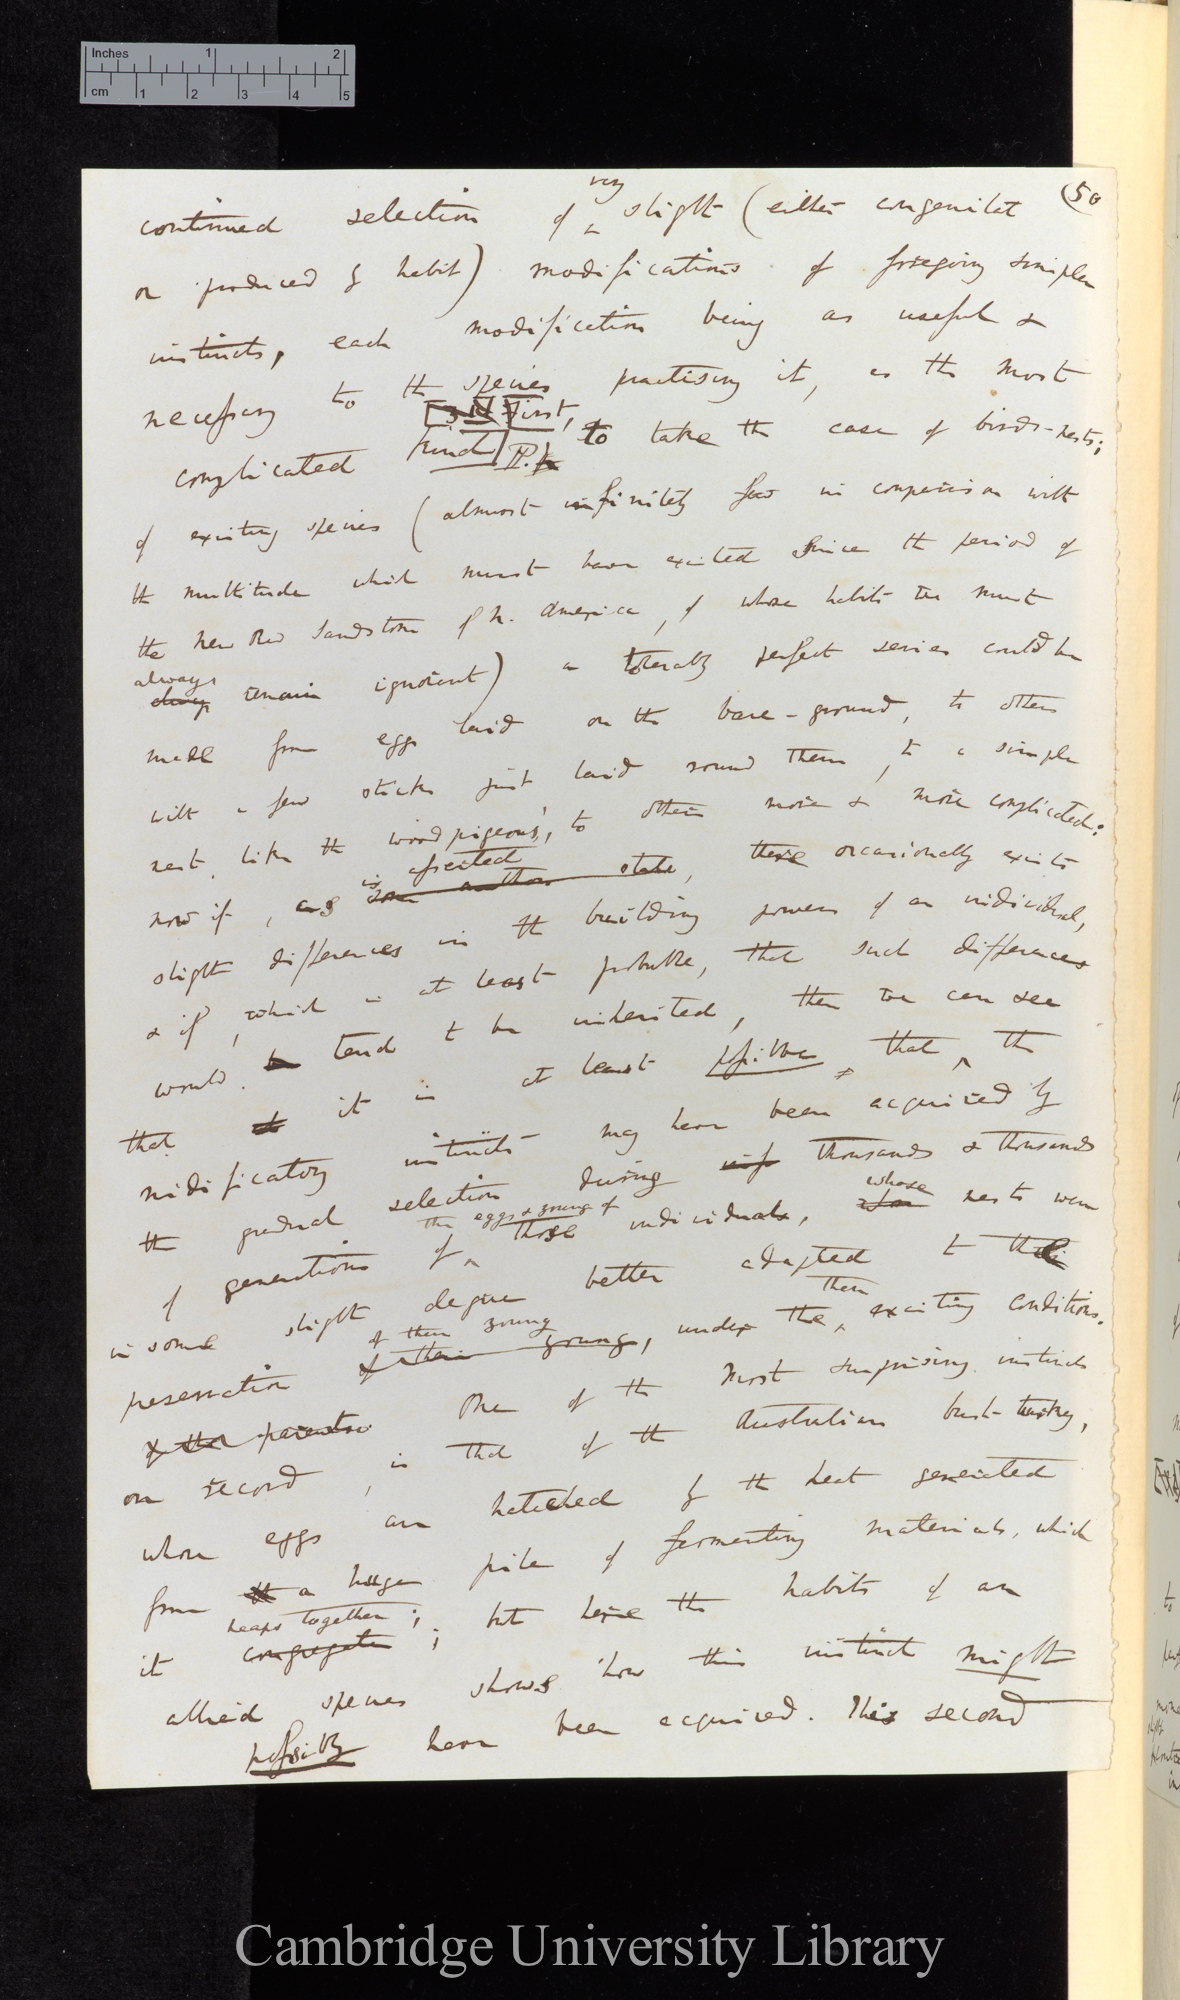 Inches 1 2
cm 1 2 3 4 5
(50
very
continued selection of ^ slight (either congenital
or produced by habit) modifications of foregoing simpler
instincts, each modification being as useful &
necessary to the species practising it, as the most
complicated kind] First, to take the case of birds-nests;
of existing species (almost infinitely few in comparison with
the multitude which must have existed since the period of
the new Red Sandstone of N. America, of whose habits we must
always
always remain ignorant) a tolerably perfect series could be
made from eggs laid on the bare-ground, to others
with a few sticks just laid round them, to a simple
nest like the wood pigeons', to others more & more complicated:
is asserted
now if, as some authors state, there occasionally exists
slight differences in the building powers of an individual,
& if, which is at least probable, that such differences
would tend to be inherited, then we can see
that it is at least possible that ^ the
nidificatory instincts may have been acquired by
the gradual selection during thousands & thousands
the eggs & young of whose
of generations of ^ those individuals, nests were
in some slight degree better adapted to the
of their young then
preservation of their young, under the ^ existing conditions.
& their parents. One of the most surprising instincts
on record, is that of the Australian bush-turkey,
whose eggs are hatched by the heat generated
from a huge pile of fermenting materials, which
heaps together;
it congregates; but here the habits of an
allied species shows how this instinct might
possibly have been acquired. This second
Cambridge University Library